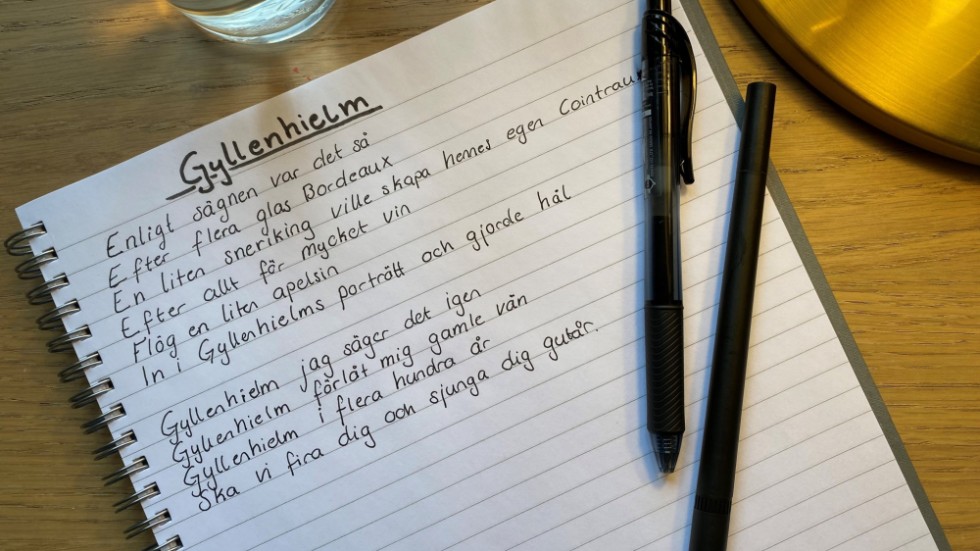 Gyllenhielm
Enligt sägnen var det så
Efter flera glas Bordeaux
En liten sneriking ville skapa hennes egen Cointraux
Efter allt för mycket vin
Flög en liten apelsin
In i Gyllenhielms porträtt och gjorde hål
Gyllenhielm jag säger det igen
Gyllenhielm förlåt mig gamle vän
Gyllenhielm i flera hundra år
Ska vi fira dig och sjunga dig gutår.